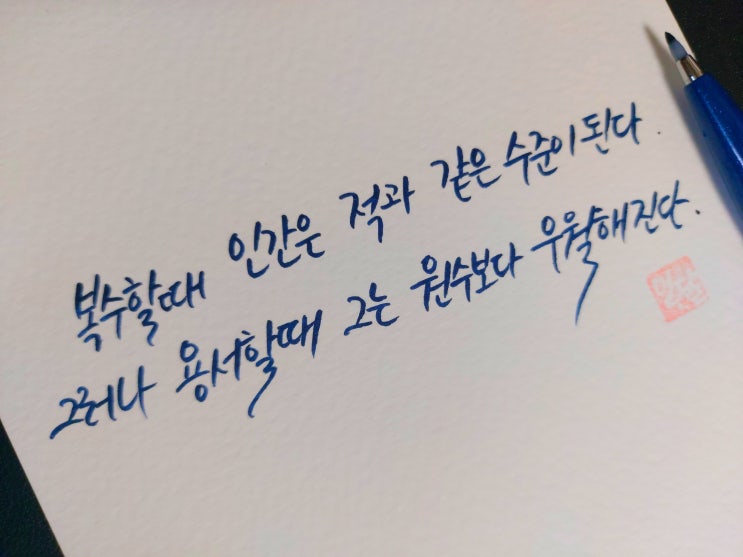 복수할때 인간은 적과 같은 수준이 된다.
그러나 용서할때 그는 원수보다 우월해진다.